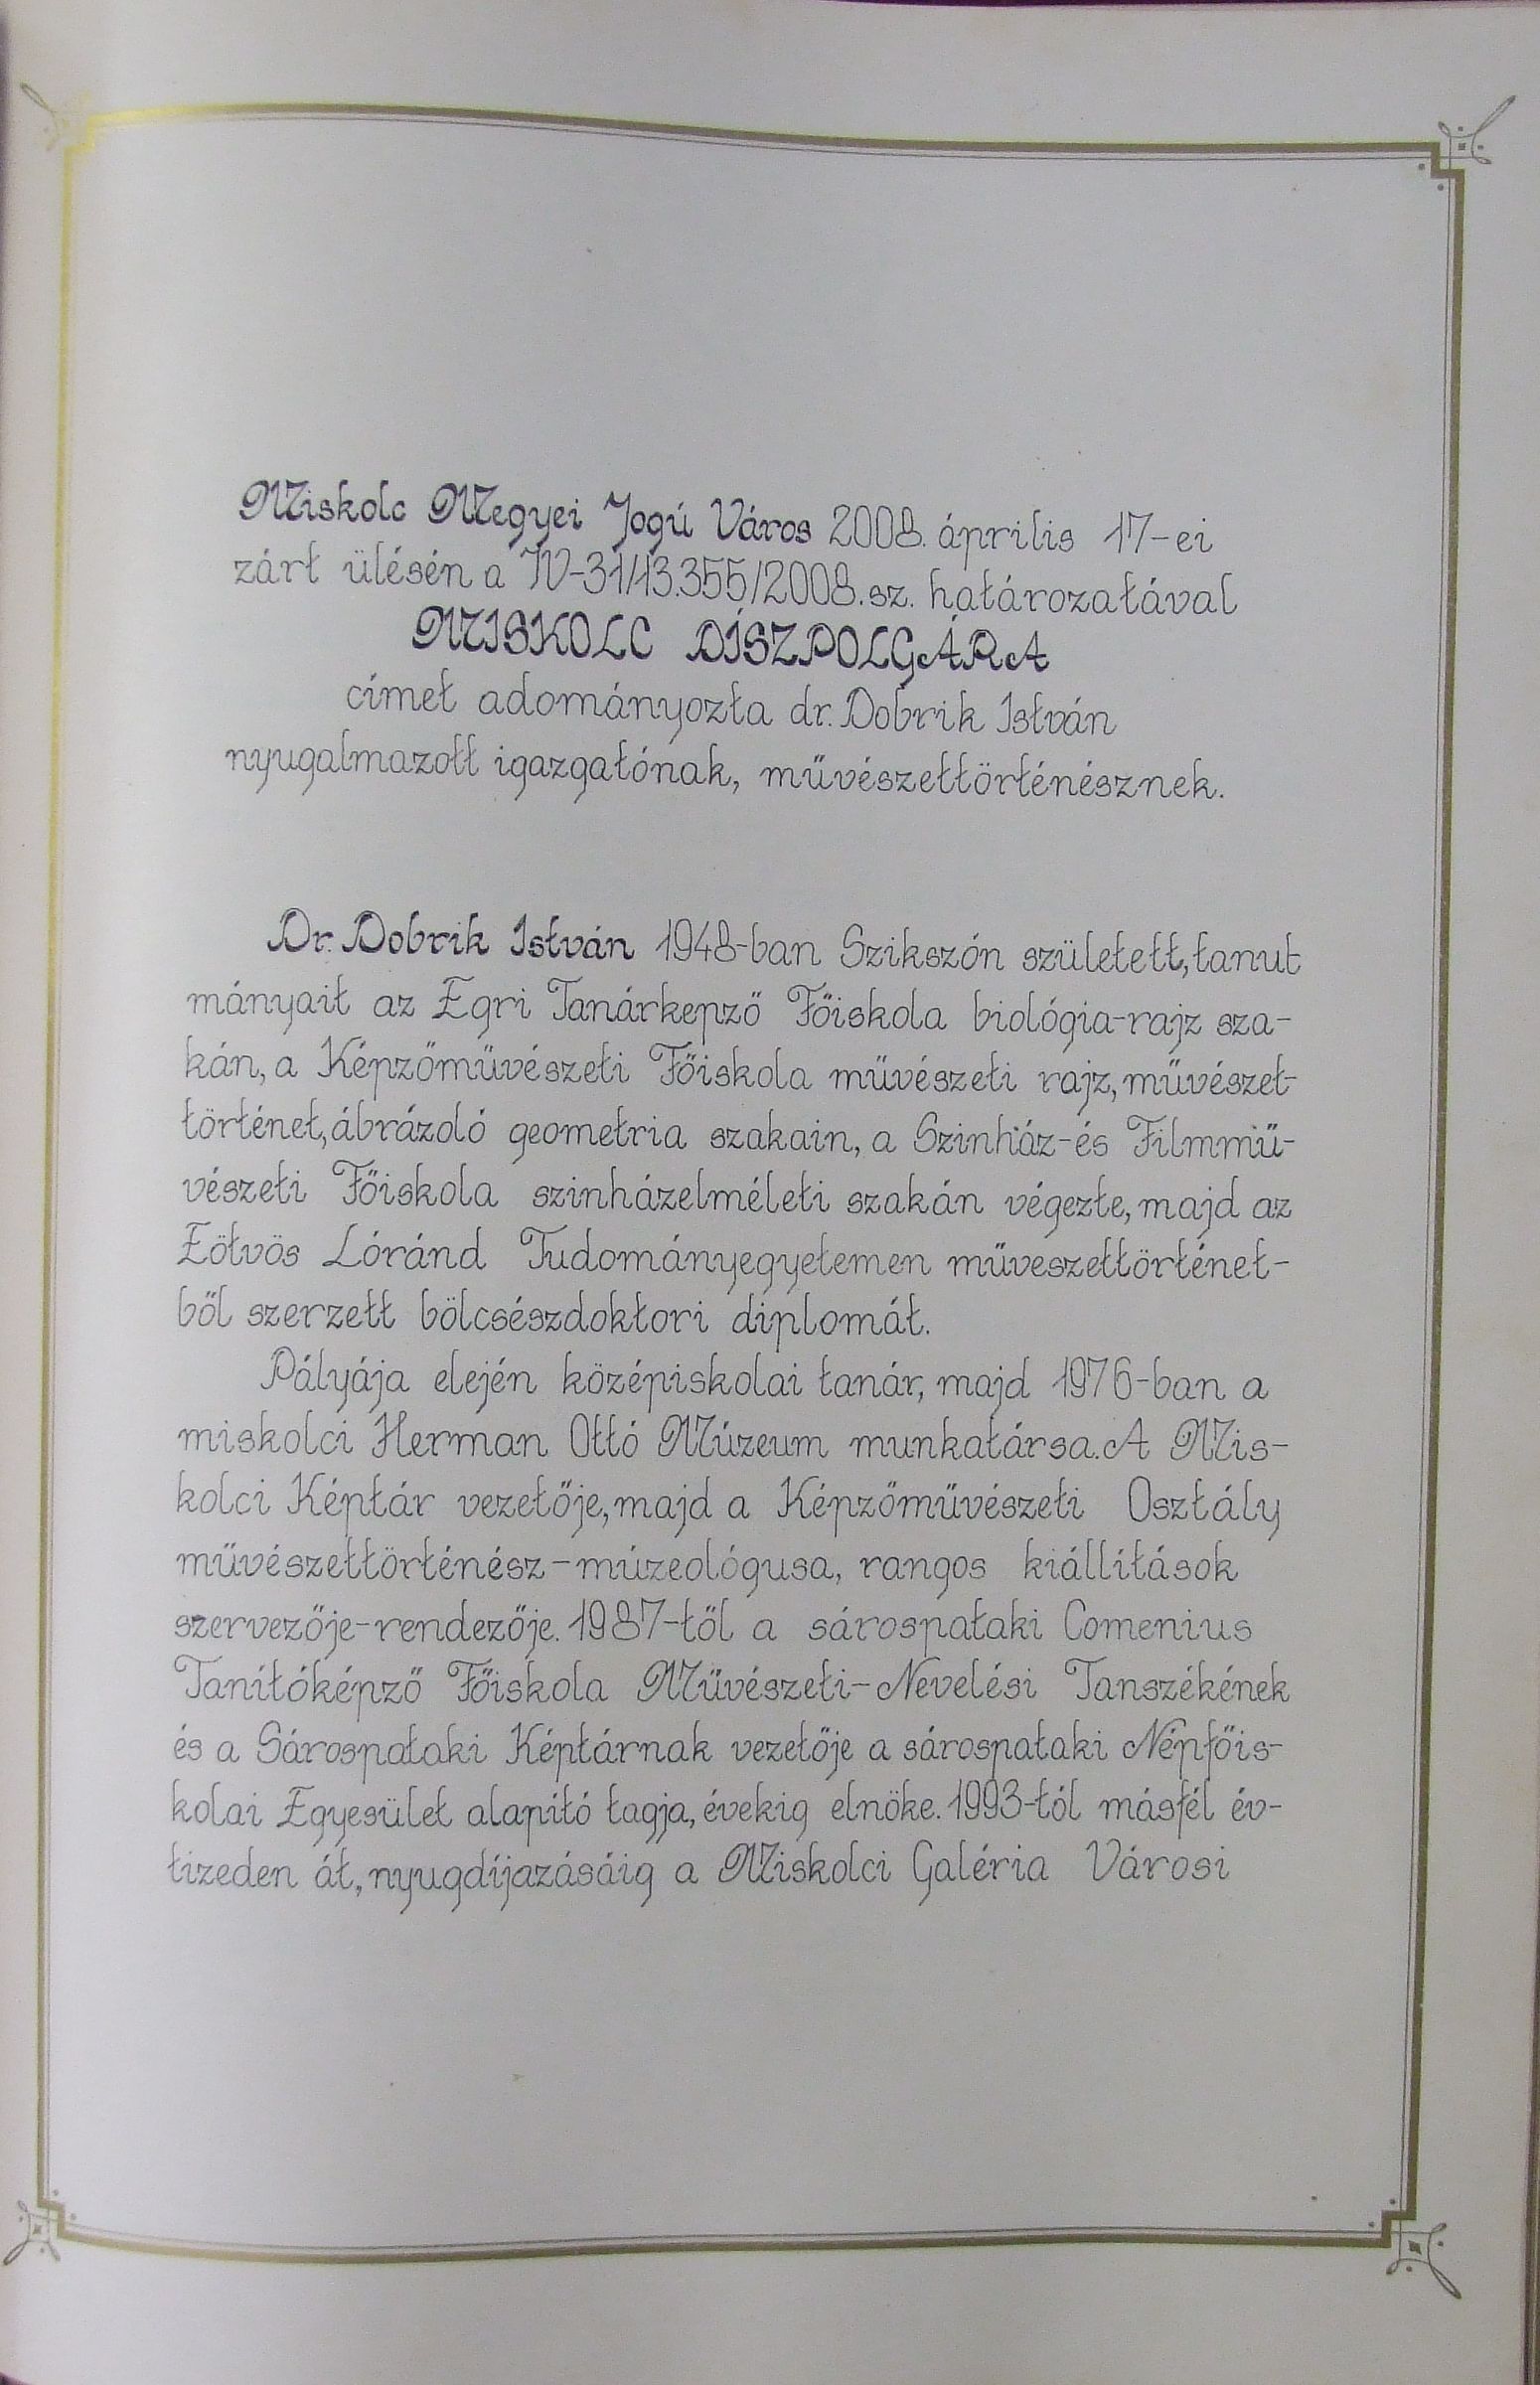 Miskolc Megyei Jogú Város 2008. április 17-ei
zárt ülésén a IV-31/13.355/2008.sz. határozatával
MISKOLC DÍSZPOLGÁRA
címet adományozta dr. Dobrik István
nyugalmazott igazgatónak, művészettörténésznek.
Dr. Dobrik István 1948-ban Szikszón született, tanul
mányait az Egri Tanárkepző Főiskola biológia-rajz sza-
kán, a Képzőművészeti Főiskola művészeti rajz, művészet-
történet, ábrázoló geometria szakain, a Szinház-és Filmmű-
vészeti Főiskola szinházelméleti szakán végezte, majd az
Eötvös Lóránd Tudományegyetemen műveszettörténet-
ből szerzett bölcsészdoktori diplomát.
Pályája elején középiskolai tanár, majd 1976-ban a
miskolci Herman Ottó Múzeum munkatársa. A Mis-
kolci Képtár vezetője, majd a Képzőművészeti Osztály
művészettörténész-múzeológusa, rangos kiállítások
szervezője-rendezője. 1987-től a sárospataki Comenius
Tanítóképző Főiskola Művészeti-Nevelési Tanszékének
és a Sárospataki Képtárnak vezetője a sárospataki Népfőis-
kolai Egyesület alapító tagja, évekig elnöke. 1993-tól másfél év-
tizeden át, nyugdíjazásáig a Miskolci Galéria Városi